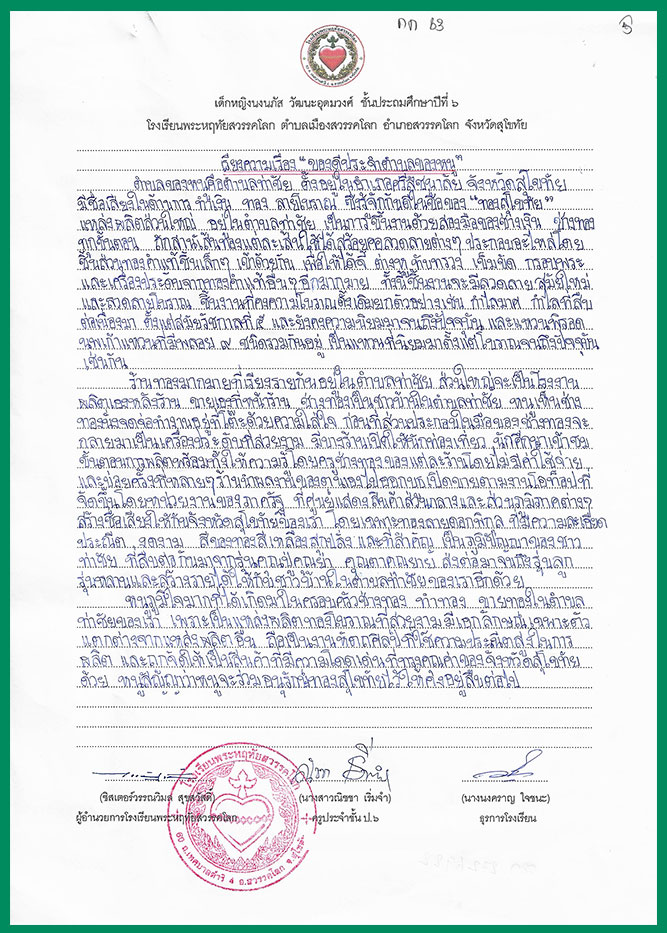 กก 63
5
เด็กหญิงนงนภัส วัฒนะอุดมวงศ์ ชั้นประถมศึกษาปีที่ ๖
โรงเรียนพระหฤทัยสวรรคโลก ตำบลเมืองสวรรคโลก อำเภอสวรรคโลก จังหวัดสุโขทัย
เรียงความเรื่อง "ของดีประจำตำบลของหนู"
ตำบลของหนูคือตำบลท่าชัย ตั้งอยู่ในอำเภอศรีสัชนาลัย จังหวัดสุโขทัย
มีชื่อเสียงในด้านการ ทำเงิน ทอง ลายโบราณ ที่รู้จักกันดีในชื่อของ "ทองสุโขทัย"
แหล่งผลิตส่วนใหญ่ อยู่ในตำบลท่าชัย เป็นการขึ้นงานด้วยสองมือของช่างเงิน ช่างทอง
ทุกขั้นตอน ถักสานเส้นทองแต่ละเส้นให้ได้สร้อยคอลวดลายต่างๆ ประกอบอะไหล่โดย
ชิ้นส่วนทองคำแท้ชิ้นเล็กๆ เข้าด้วยกัน เพื่อให้ได้จี้ ต่างหู ทับทรวง เข็มขัด กรอบพระ
และเครื่องประดับจากทองคำแท้อื่นๆ อีกมากมาย ทั้งนี้ชิ้นงานจะมีลวดลาย สมัยใหม่
และลวดลายโบราณ ชิ้นงานที่คงความโบราณดั้งเดิมยกตัวอย่างเช่น กำไลมาศ กำไลที่สืบ
ต่อเนื่องมา ตั้งแต่สมัยรัชกาลที่ ๕ และยังคงความนิยมมาจนถึงปัจจุบัน และแหวนพิรอด
นพเก้าแหวนที่มีพลอย ๙ ชนิดรวมกันอยู่ เป็นแหวนที่นิยมมาตั้งแต่โบราณจนถึงปัจจุบัน
เช่นกัน
ร้านทองมากมายที่เรียงรายกันอยู่ในตำบลท่าชัย ส่วนใหญ่จะเป็นโรงงาน
ผลิตเองหลังร้าน ขายเองที่หน้าร้าน ช่างทองเป็นชาวบ้านในตำบลท่าชัย หนูเห็นช่าง
ทองนั่งจดจ่อทำงานอยู่ที่โต๊ะด้วยความใส่ใจ ก่อนที่ส่วนประกอบในมือของช่างทองจะ
กลายมาเป็นเครื่องประดับที่สวยงาม มีบางร้านเปิดให้นักท่องเที่ยว นักศึกษาเข้าชม
ขั้นตอนการผลิตพร้อมทั้งให้ความรู้โดยครูช่างทองของแต่ละร้านโดยไม่มีค่าใช้จ่าย
และบ่อยครั้งที่หลายๆร้านนำผลงานของตนเองไปออกบูธเปิดขายตามงานโอท็อปที่
จัดขึ้นโดยหน่วยงานของภาครัฐ ที่ศูนย์แสดงสินค้าส่วนกลางและส่วนภูมิภาคต่างๆ
สร้างชื่อเสียงให้กับจังหวัดสุโขทัยของเรา โดยเฉพาะทองลายดอกพิกุล ที่มีความละเอียด
ประณีต งดงาม สีของทองสีเหลืองสุกปลั่ง และที่สำคัญ เป็นภูมิปัญญาของชาว
ท่าชัย ที่สืบต่อกันมาจากรุ่นคุณปู่คุณย่า คุณตาคุณยาย ส่งต่อมาจนถึงรุ่นลูก
รุ่นหลานและสร้างรายได้ให้กับชาวบ้านในตำบลท่าชัยของเราอีกด้วย
หนูภูมิใจมากที่ได้เกิดมาในครอบครัวช่างทอง ทำทอง ขายทองในตำบล
ท่าชัยของเรา เพราะเป็นแหล่งผลิตทองโบราณที่สวยงามมีเอกลักษณ์เฉพาะตัว
แตกต่างจากแหล่งผลิตอื่น ถือเป็นงานหัตถศิลป์ที่ใช้ความประณีตสูงในการ
ผลิต และถูกจัดให้เป็นสินค้าที่มีความโดดเด่นที่ทรงคุณค่าของจังหวัดสุโขทัย
ด้วย หนูสัญญาว่าหนูจะร่วมอนุรักษ์ทองสุโขทัยไว้ให้คงอยู่สืบต่อไป
(ซิสเตอร์วรรณวิมล สุขสวัสดิ์) (นางสาวณิชชา เริ่มจำ) (นางนงคราญ ใจชนะ)
ผู้อำนวยการโรงเรียนพระหฤทัยสวรรคโลก ครูประจำชั้น ป.๖ ธุรการโรงเรียน
โรงเรียนพระหฤทัยสวรรคโลก
60 ถ.เทศบาลดำริ 4 อ.สวรรคโลก จ.สุโขทัย